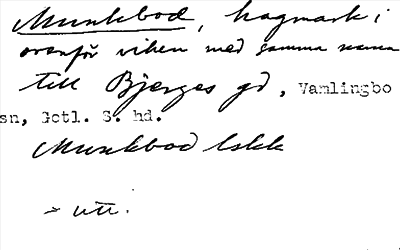 Munkbod, hagmark i
ovanför viken med samma namn
till Bjerges gd, Vamlingbo
sn, Gotl. S. hd.
Munkbod lskk
utt.